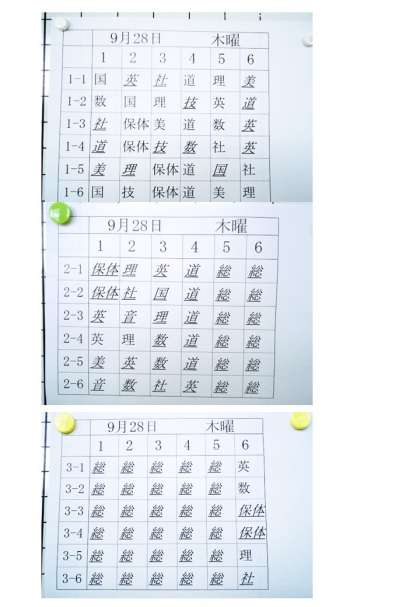 9月28日 木曜
1 2 3 4 5 6
1-1 国 英 社 道 理 美
1-2 数 国 理 技 英 道
1-3 社 保体 美 道 数 英
1-4 道 保体 技 数 社 英
1-5 美 理 保体 道 国 社
1-6 国 技 保体 道 美 理
9月28日 木曜
1 2 3 4 5 6
2-1 保体 理 英 道 総 総
2-2 保体 社 国 道 総 総
2-3 英 音 理 道 総 総
2-4 英 理 数 道 総 総
2-5 美 英 数 道 総 総
2-6 音 数 社 英 総 総
9月28日 木曜
1 2 3 4 5 6
3-1 総 総 総 総 総 英
3-2 総 総 総 総 総 数
3-3 総 総 総 総 総 保体
3-4 総 総 総 総 総 保体
3-5 総 総 総 総 総 理
3-6 総 総 総 総 総 社